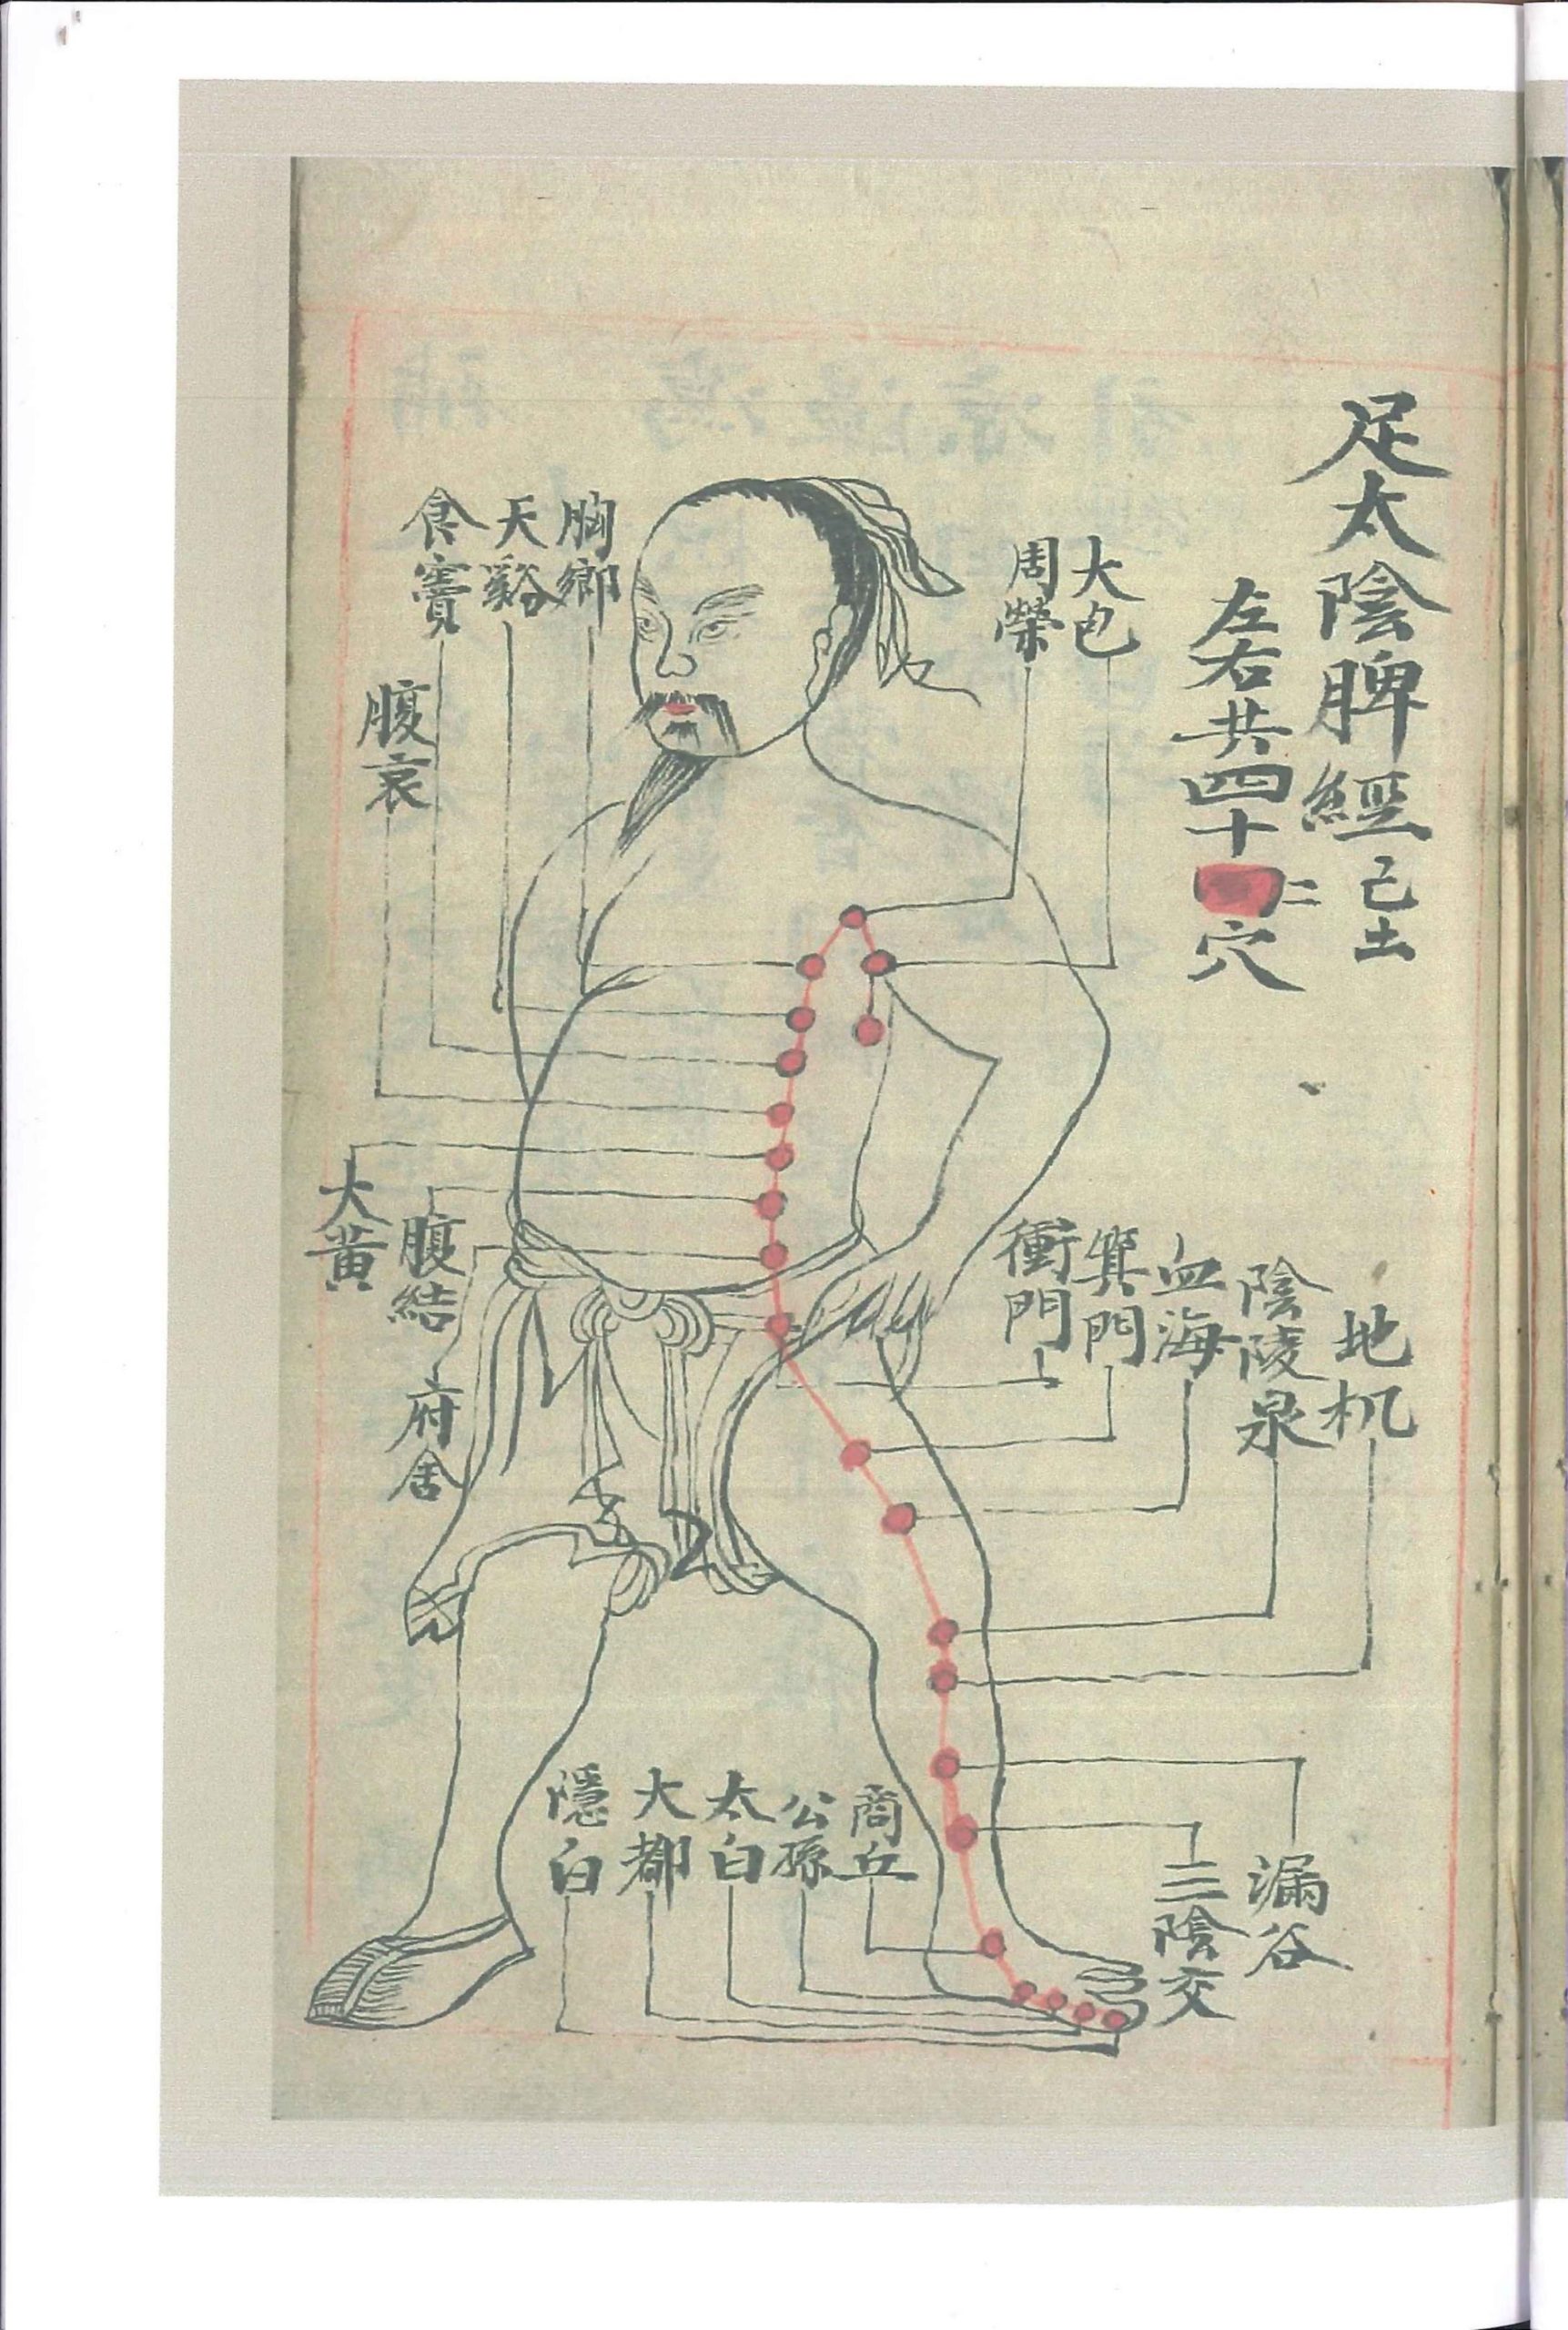 足太陰脾經己土
左右共四十二穴
大包
周榮
胸鄉
天谿
食竇
腹哀
大黃
腹結
府舍
衝門
箕門
血海
陰陵泉
地机
漏谷
三陰交
商丘
公孫
太白
大都
隱白